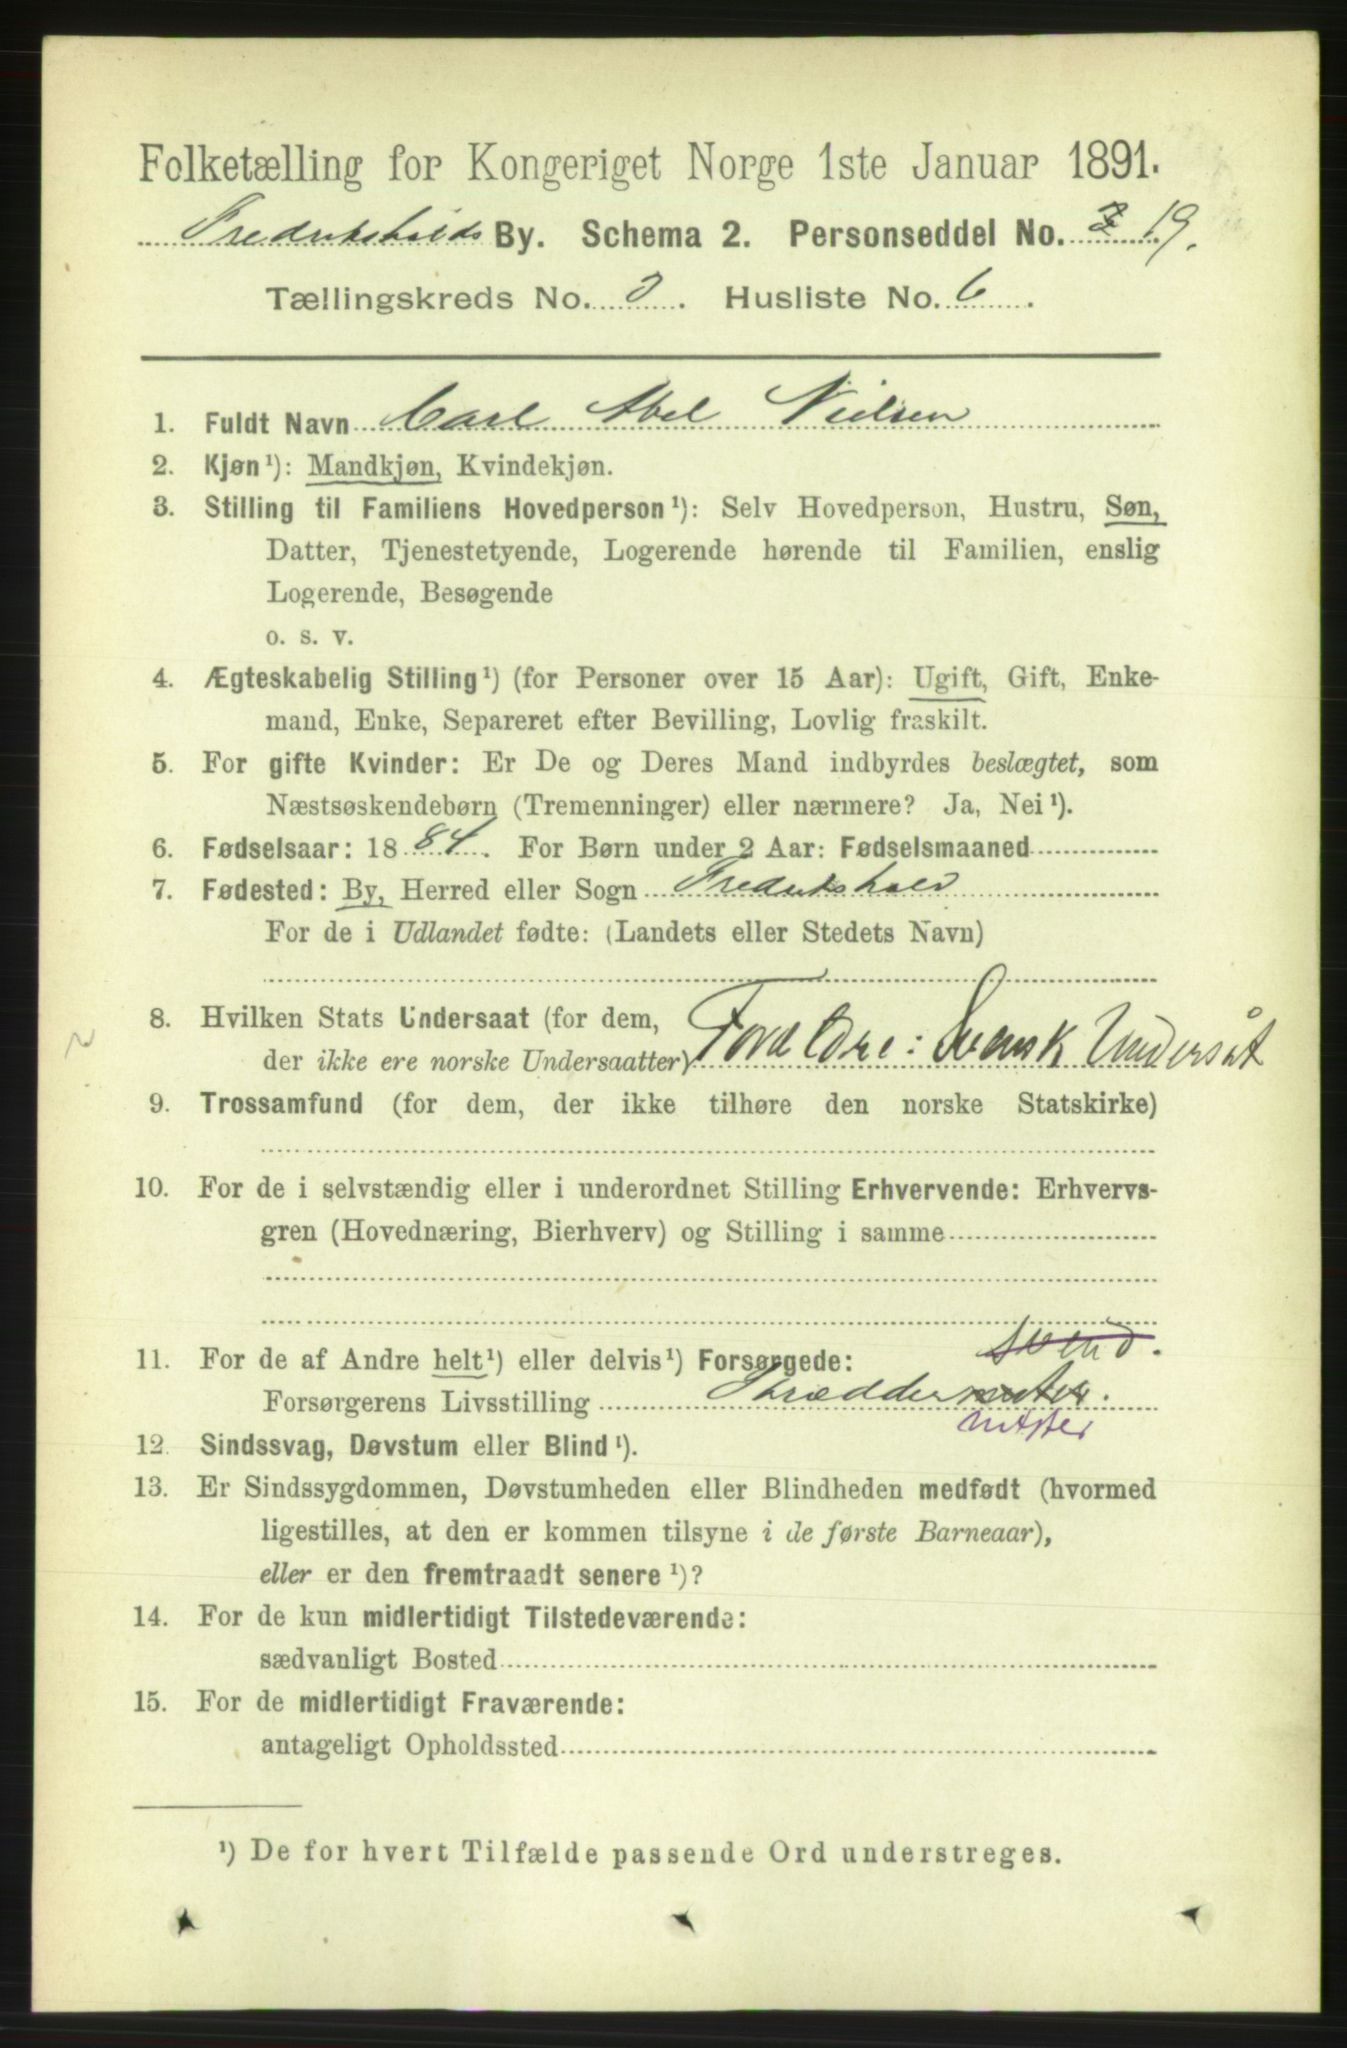 Folketælling for Kongeriget Norge 1ste Januar 1891.
Fredrikshalds By. Schema 2. Personseddel No. 19.
Tællingskreds No. 3. Husliste No. 6.
1. Fuldt Navn Carl Abel Nielsen
2. Kjøn¹): Mandkjøn, Kvindekjøn.
3. Stilling til Familiens Hovedperson¹): Selv Hovedperson, Hustru, Søn,
Datter, Tjenestetyende, Logerende hørende til Familien, enslig
Logerende, Besøgende
o. s. v.
4. Ægteskabelig Stilling¹) (for Personer over 15 Aar): Ugift, Gift, Enke-
mand, Enke, Separeret efter Bevilling, Lovlig fraskilt.
5. For gifte Kvinder: Er De og Deres Mand indbyrdes beslægtet, som
Næstsøskendebørn (Tremenninger) eller nærmere? Ja, Nei¹).
6. Fødselsaar: 1884. For Børn under 2 Aar: Fødselsmaaned
7. Fødested: By, Herred eller Sogn Fredrikshald
For de i Udlandet fødte: (Landets eller Stedets Navn)
8. Hvilken Stats Undersaat (for dem,
der ikke ere norske Undersaatter) Foreldre: Svensk Undersåt
9. Trossamfund (for dem, der ikke tilhøre den norske Statskirke)
10. For de i selvstændig eller i underordnet Stilling Erhvervende: Erhvervs-
gren (Hovednæring, Bierhverv) og Stilling i samme
svend.
11. For de af Andre helt¹) eller delvis¹) Forsørgede:
Forsørgerens Livsstilling Skrædder
mester
12. Sindssvag, Døvstum eller Blind¹).
13. Er Sindssygdommen, Døvstumheden eller Blindheden medfødt (hvormed
ligestilles, at den er kommen tilsyne i de første Barneaar),
eller er den fremtraadt senere¹)?
14. For de kun midlertidigt Tilstedeværende:
sædvanligt Bosted
15. For de midlertidigt Fraværende:
antageligt Opholdssted
¹) De for hvert Tilfælde passende Ord understreges.